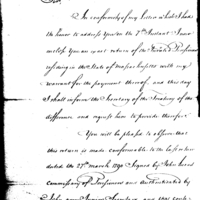 Sir,
In conformity of my Letter which I had
the honor to address you on the 7th Instant I now
enclose you an exact return of the Invalid Pensioners
residing in the State of Massachusetts with my
warrant for the payment thereof, and this day
I shall inform the Secretary of the Treasury of the
difference and request him to provide therefor.
You will be pleased to observe that
this return is made conformable to the last return
dated the 27th March 1790 Signed by John Lucas
Commissary of Pensioners and Authenticated by
John Avery Junior Secretary and that